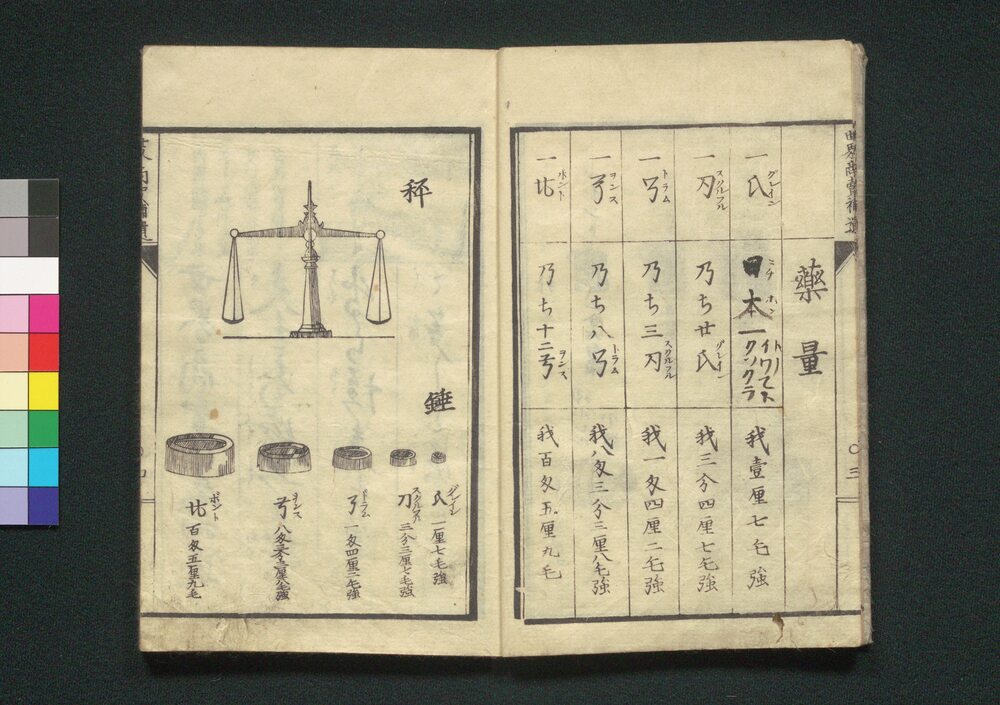 藥量
一氏グレイン
日本ミチホン一トイワてスクンクラ
我壹厘七毛強
一刀スクルフル
乃ち廿氏グレイン
我三分四厘七毛強
一㔾トラム
乃ち三刀スクルフル
我一匁四厘二毛強
一弓ヲンス
乃ち八㔾トラム
我八匁三分三厘八毛強
一斗ポント
乃ち十二弓ヲンス
我百匁五厘九毛
〇三
秤
錘
氏グレイン
一厘七毛強
刀スクルフル
三分三厘七毛強
トラム
一匁四厘二毛強
弓ヲンス
ポント
百匁五厘九毛